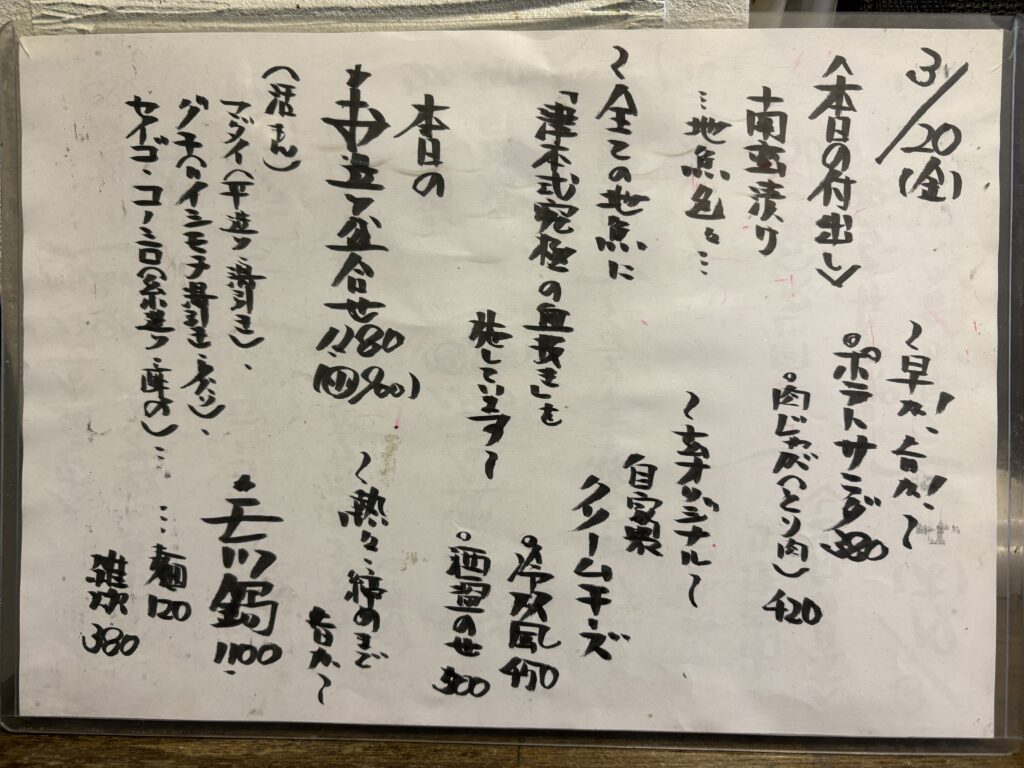 3/20(金)
〈本日の付出し〉
南蛮漬け
…地魚色々…
〜全ての地魚に
「津本式究極の血抜き」を
施しています〜
本日の
盛合せ 1,180
(活〆)
マダイ(平造り、湯引き)、
グチ(イシモチ湯引き、炙り)、
セイゴ、コノシロ(糸造り、酢〆)…
〜早い、旨い!〜
ポテトサラダ 380
肉じゃが(とり肉) 420
〜玄オリジナル〜
自家製
クリームチーズ
冷奴風 450
酒盗のせ 500
〜熱々、締めまで
旨い〜
モツ鍋 1100
…麺 120
雑炊 380